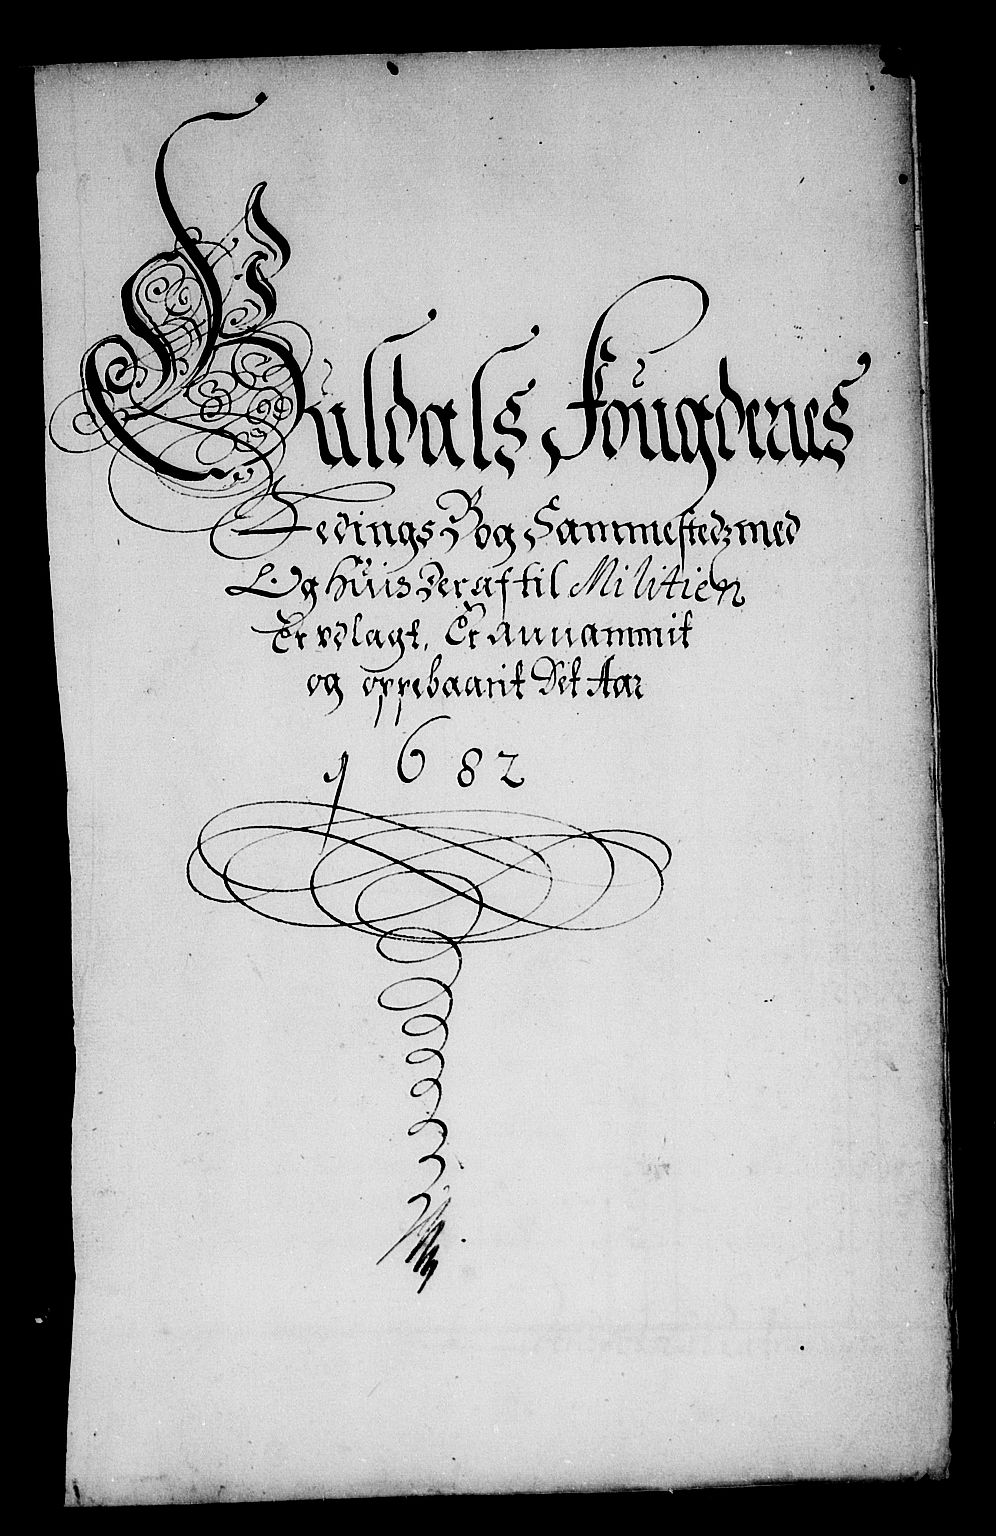 Guldals Fougderies
Tedings Bog Sammestedz med
Og huis der af til Militien
Er vdlagt, Er Annammit
og oppebaarit Det Aar
1682